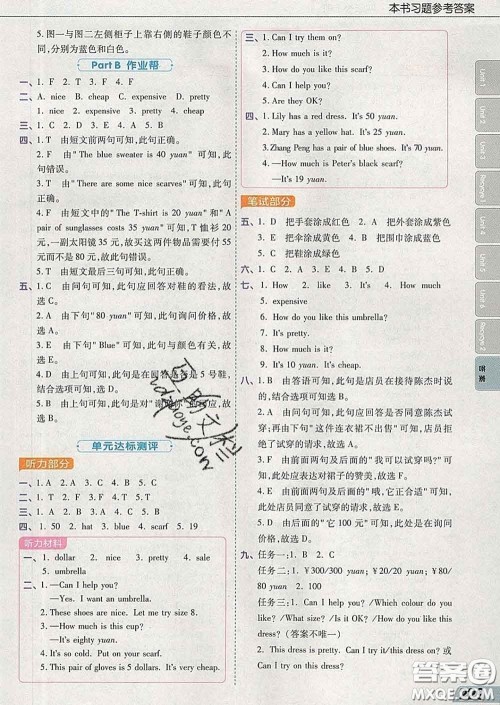 本书习题参考答案
5. 图一与图二左侧柜子上靠右侧的鞋子颜色不
同,分别为蓝色和白色。
Part B 作业帮
一、1. F 2. T 3. F 4. F
二、A. nice B. cheap C. expensive D. pretty
1. nice 2. expensive 3. pretty 4. cheap
三、1. C 2. A 3. D 4. B 5. E
四、1. T 由短文前两句可知,此句正确。
2. F 由"The blue sweater is 40 yuan"可知,此
句错误。
3. T 由"There are some nice scarves"可知,此
句正确。
4. F 由短文中的"The T-shirt is 20 yuan"和"A
pair of sunglasses costs 35 yuan"可知,T恤衫20
元,一副太阳镜35元,故买这两件物品需要付55
元而不是80元,故此句错误。
5. T 由短文最后三句可知,此句正确。
五、1. C 由问句可知,此句应回答对鞋的看法,故
选C。
2. A 由下句"80 yuan"可知,此句应询问价格,故
选A。
3. E 由下句"Blue"可知,此句应询问颜色,有关,
故选E。
4. D 由上句可知,此句是在回答
5
号鞋,
结合选项可知,选D。
5. B 由上句可知,此句是对"谢谢你"的
故
选B。
单元达标测评
听力部分
一、1. A 2. A 3. C 4. B 5. C
二、1. T 2. F 3. F 4. F 5. T
三、1. C 2. D 3. A 4. B 5. E
四、1. 50 2. hat 3. blue 4. scarf 5. 19
听力材料
一、1. dollar 2. nice 3. pretty 4. sale
5. umbrella
二、1. —Can I help you?
—Yes. I want an umbrella.
2. These shoes are nice. Let me try size 8.
3. —How much is this cup?
—It's eighty yuan.
4. It's so cold. Put on your scarf.
5. This pair of gloves is 5 dollars. It's very cheap.
三、1. Can I try them on?
2. How much is it?
3. How do you like this scarf?
4. Can I help you?
5. Are they OK?
四、1. Lily has a red dress. It's 50 yuan.
2. Mary has a yellow hat. It's 25 yuan.
3. Zhang Peng has a pair of blue shoes. It's 70 yuan.
4. —How much is Peter's black scarf?
—It's 19 yuan.
笔试部分
五、1. D 把手套涂成红色 2. A 把外套涂成紫色
3. E 把伞涂成黄色 4. B 把围巾涂成蓝色
5. C 把鞋涂成绿色
六、1. C 2. A 3. A 4. B 5. A
七、1. How 2. like 3. How 4. much
5. expensive
6. How do you like this umbrella?
7. It's pretty.
8. How much is it?
9. It's 10 yuan. It's cheap.
八、1. B 由答语可知,此句是店员在接待陈杰时说
的,故选B。
2. A 由问句可知,此句应是店员回答是否同意陈
杰试穿的请求,再由下句"但是这件连衣裙不出售"
可知,店员拒绝了试穿的请求,故选A。
3. F 由前面两句及后面的"我能试穿它吗?"可
知,此句应表达对裙子的赞美,故选F。
4. E 由前面两句及后面的"当然可以。给你。"可
知,店员同意了试穿的请求,故选E。
5. D 由后面的"它100元"可知,此句是在询问
价格,故选D。
九、任务一:1. B 2. C
任务二:1. ¥300/300 yuan; ¥20/20 yuan;
¥80/80 yuan 2. ¥200/200 yuan
任务三:1. Can I help you? /What colour do
you like? /Which colour would you
like? /How do you like this
dress?(答案不唯一)
2. This dress is pretty. Can I try it/this dress on?
Can I try on this dress?
Unit 1
Unit 2
Unit 3
Recycle 1
Unit 4
Unit 5
Unit 6
Recycle 2
答案
答案圈
MXQE.COM